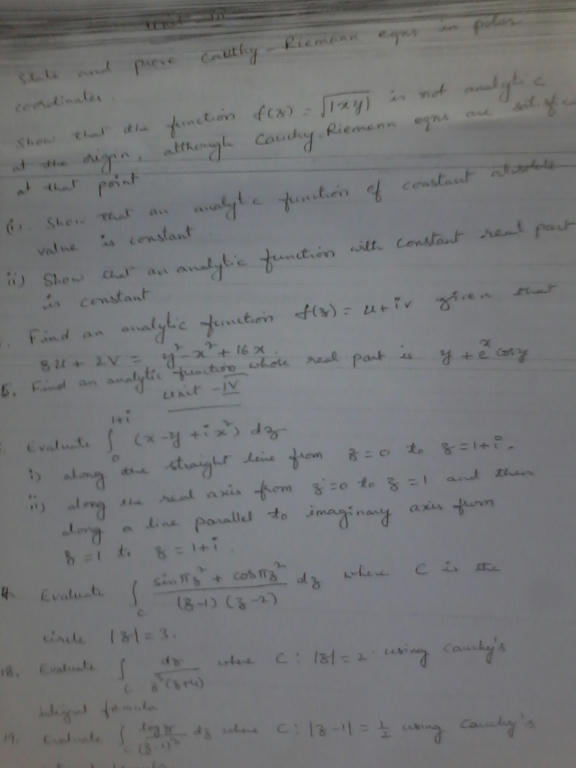 Unit - III
State and prove Cauthy-Riemann eqns in polar
coordinates.
Show that the function f(z) = √|xy| is not analytic
at the origin, although Cauchy-Riemann eqns are
at that point
(i). Show that an analytic function of constant absolute
value is constant
ii) Show that an analytic function with constant real part
is constant
. Find an analytic function f(z) = u+iv given that
8u + 2v = y² - x² + 16x
5. Find an analytic function whose real part is y + eˣ cosy
Unit - IV
Evaluate ∫₀¹⁺ⁱ (x-y+ix²) dz
i) along the straight line from z=0 to z=1+i.
ii) along the real axis from z=0 to z=1 and then
along a line parallel to imaginary axis from
z=1 to z=1+i.
4. Evaluate ∫_C (sinπz² + cosπz²)/((z-1)(z-2)) dz where C is the
circle |z|=3.
18. Evaluate ∫_C dz/(z³(z+4)) where C: |z|=2 using Cauchy's
integral formula
19. Evaluate ∫_C logz/(z-1)³ dz where C: |z-1| = 1/2 using Cauchy's